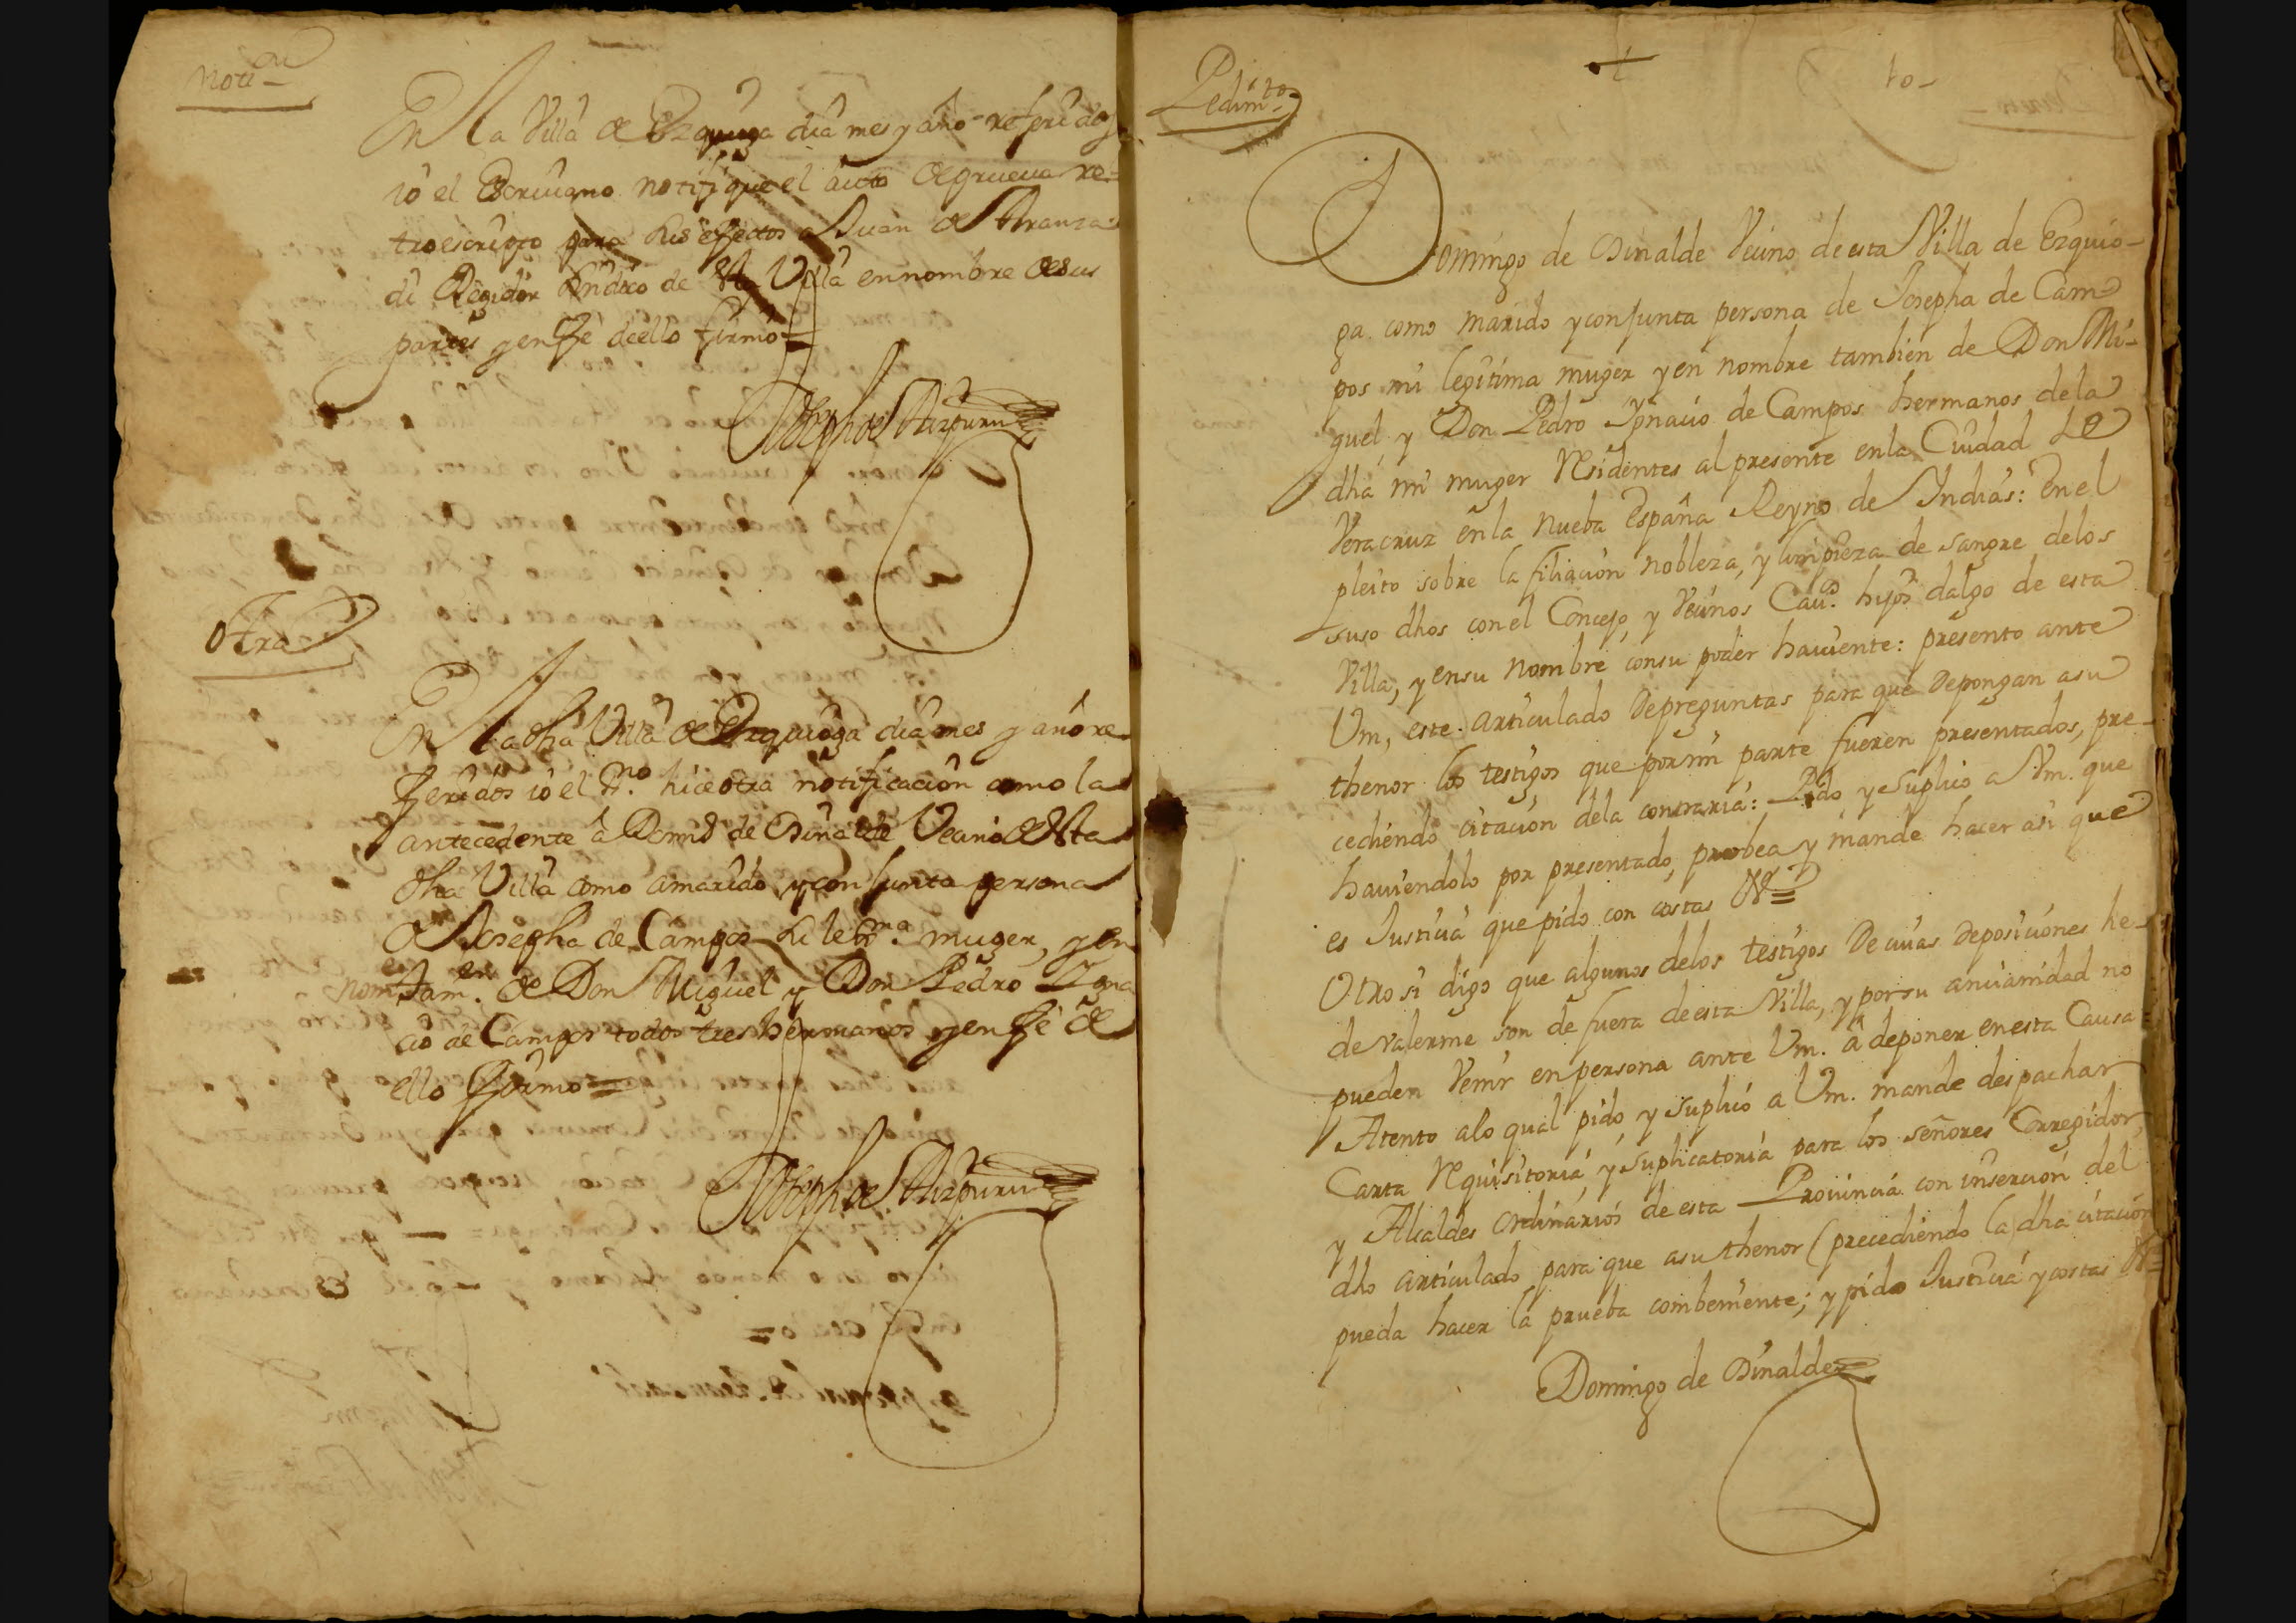 Noti.on
En la Villa de Ezquioga dia mes y año referidos
io el Escriuano notifique el auto de prueua re=
troescripto para sus efectos a Juan de Aranza
di Regidor Sindico de esta Villa en nombre de sus
partes y en fe dello firmo =
Joseph de Aizpuru
otra
En la dha Villa de Ezquioga dia mes y año re
feridos io el ss.no hice otra notificacion como la
antecedente a Domo de Osinalde Vecino de esta
dha Villa como a marido y conjunta persona
de Josepha de Campos su legma. muger, y en
nom.e tam.en de Don Miguel y Don Pedro Igna
cio de Campos todos tres hermanos y en fe de
ello firmo =
Joseph de Aizpuru
Pedimto
10-
Domingo de Osinalde Vecino de esta Villa de Ezquio-
ga como marido y conjunta persona de Josepha de Cam-
pos mi legitima muger y en nombre tambien de Don Mi-
guel, y Don Pedro Ygnacio de Campos hermanos de la
dha mi muger Residentes al presente en la Ciudad de
Veracruz en la Nueba España Reyno de Indias: En el
pleito sobre la filiacion nobleza, y limpieza de sangre de los
suso dhos con el Concejo, y Vecinos Cauos. hijos dalgo de esta
Villa, y en su nombre con su poder hauiente: presento ante
Vm, este articulado de preguntas para que depongan a su
thenor los testigos que por mi parte fueren presentados, pre-
cediendo citacion de la contraria: Pido y suplico a Vm. que
hauiendolo por presentado, probea y mande hacer asi que
es Justicia que pido con costas &=
Otro si digo que algunos de los testigos de cuias deposiciones he-
de valerme son de fuera de esta Villa, y por su ancianidad no
pueden Venir en persona ante Vm. â deponer en esta Causa =
Atento a lo qual pido y suplico a Vm. mande despachar
Carta Requisitoria, y suplicatoria para los señores Corregidor,
y Alcaldes ordinarios de esta Prouincia con insercion del
dho articulado para que a su thenor (precediendo la dha citacion
pueda hacer la prueba combeniente; y pido Justicia y costas &=
Domingo de Osinalde